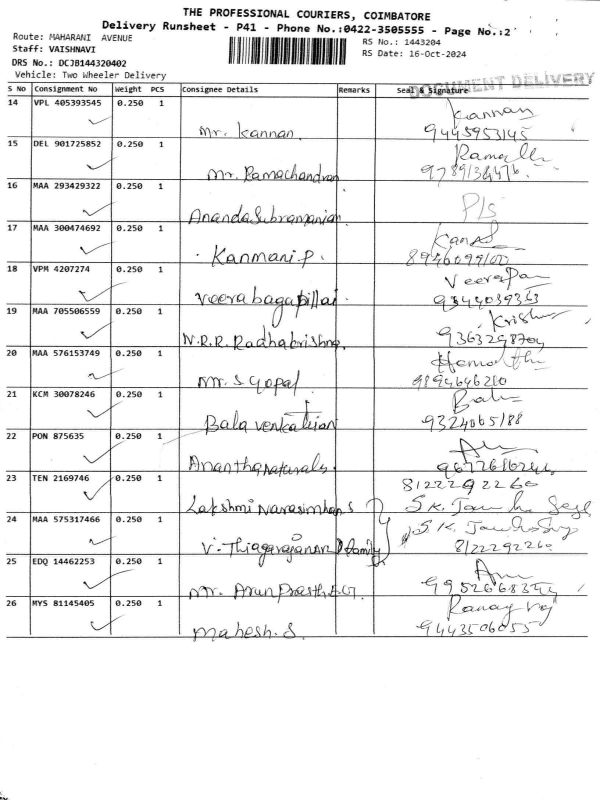 THE PROFESSIONAL COURIERS, COIMBATORE
Delivery Runsheet - P41 - Phone No.:0422-3505555 - Page No.:2
Route: MAHARANI AVENUE
RS No.: 1443204
Staff: VAISHNAVI
RS Date: 16-Oct-2024
DRS No.: DCJB144320402
DOCUMENT DELIVERY
Vehicle: Two Wheeler Delivery
S No Consignment No Weight PCS Consignee Details Remarks Seal & Signature
14 VPL 405393545 0.250 1 Mr. Kannan. Kannan
9445953145
15 DEL 901725852 0.250 1 Mr. Ramachandran
16 MAA 293429322 0.250 1 AnandaSubramanian P/s
17 MAA 300474692 0.250 1 Kanmani P.
18 VPM 4207274 0.250 1 Veerabagapillai
9344039363
19 MAA 705506559 0.250 1 N.R.R. Radhakrishna.
9363298704
20 MAA 576153749 0.250 1 Mr. S Gopal
9894646210
21 KCM 30078246 0.250 1 Bala
9324065188
22 PON 875635 0.250 1 Ananthanaturals
23 TEN 2169746 0.250 1 Lakshmi Narasimhan S
8122292260
24 MAA 575317466 0.250 1 V. Thiagarajanan family
8122292260
25 EDQ 14462253 0.250 1 Mr. Arun
26 MYS 81145405 0.250 1 Mahesh.S.
9443506055